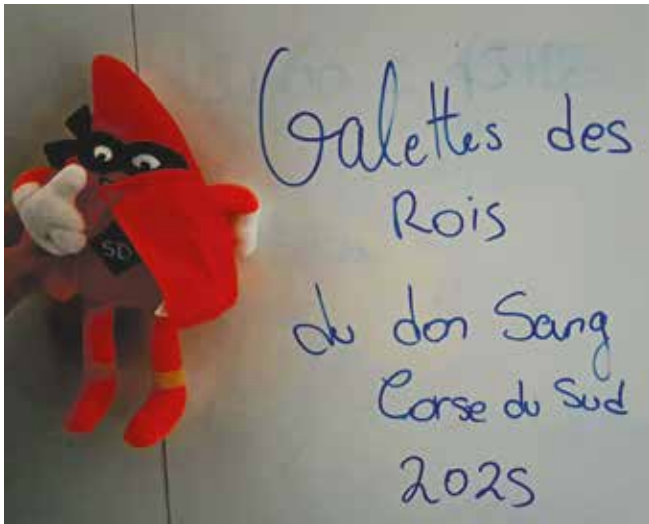 Galettes des
Rois
du don Sang
Corse du Sud
2025
SD